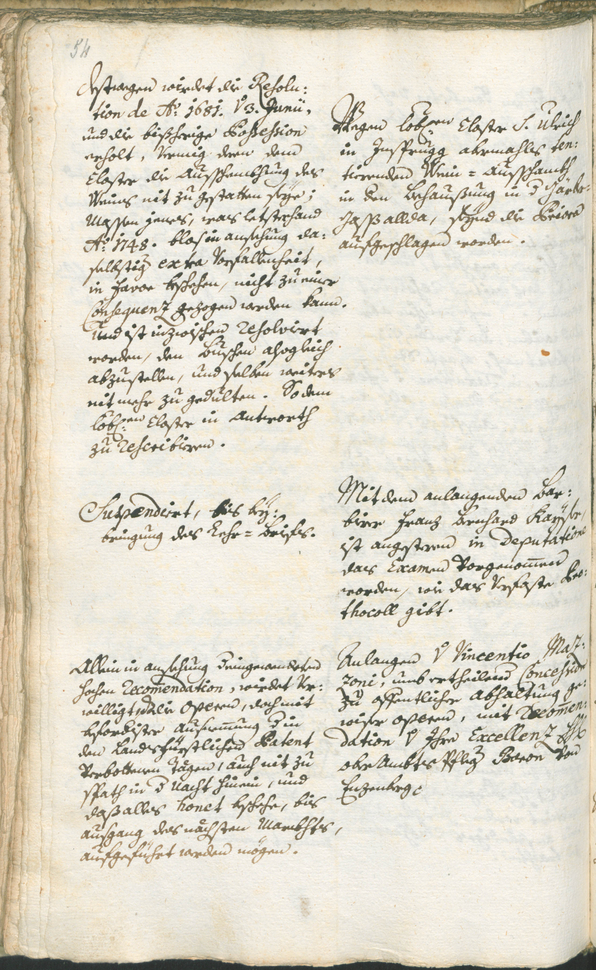 54
destwegen wirdet die Resolu:
tion de A:o 1681. V 3. Junii,
und die bisherige Possession
erholt, vermig deren dem
Closter die Ausschenkhung des
Weins nit zu gestatten seye;
Massen jenes, was letsterhand
A:o 1748. blos in ansehung da:
selbstig extra Vorfallenheit,
in favor beschehen, nicht zu einer
Consequenz gezogen werden kann.
Und ist inzwischen resolvirt
worden, den Buschen
abzustellen, und selben weiters
nit mehr zu gedulten. So dem
lobl:en Closter in Antworth
zu rescribiren.
Wegen lobl:en Closter S. Ulrich
in Insprugg abermalles ten:
tierenden Wein-Ausschankh
in den Behaußung in d
allda, seynd die Priora
aufgeschlagen worden.
Suspendirt, bis bey:
bringung des Lehr-Briefs.
Mit dem anlangenden Bar:
bierer Franz Bernhard Kayser,
ist angestern in Deputatione
das Examen vorgenommen
worden, wie das verfaste Pro:
thocoll gibt.
Allein in ansehung eingewendeten
hochen Recomendation, wirdet Ver:
williget die opern, doch mit
Ausnemmung d in
den Landsfürstlichen Patent
Verbottenen Tägen, auch nit zu
spath in d Nacht hinein, und
daß alles honet beschehe, bis
ausgang des nächsten Markhts,
aufgeführt werden mögen.
Anlangen V Vincentio Maz:
zoni, umb ertheilend Concession
zu offentlicher abhaltung ge:
wiser opern, mit Recomen:
dation V Ihro Excellenz H:
ober Ambts Pfleg Baron von
Enzenberg